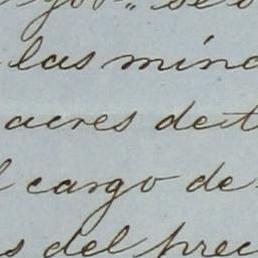 las mina
acres de t
l cargo de
s del prec